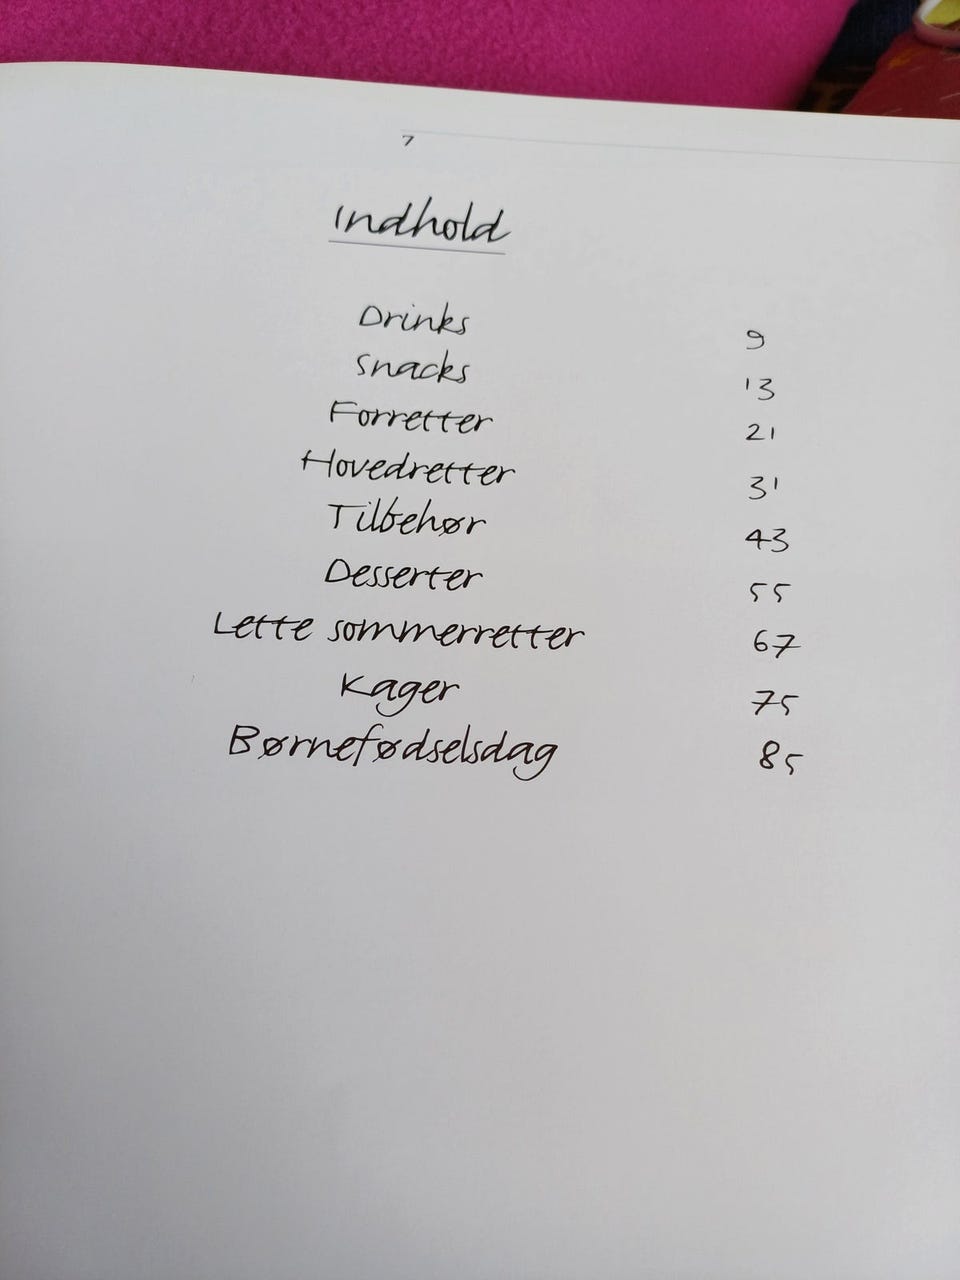 7
Indhold
Drinks 9
Snacks 13
Forretter 21
Hovedretter 31
Tilbehør 43
Desserter 55
Lette sommerretter 67
Kager 75
Børnefødselsdag 85